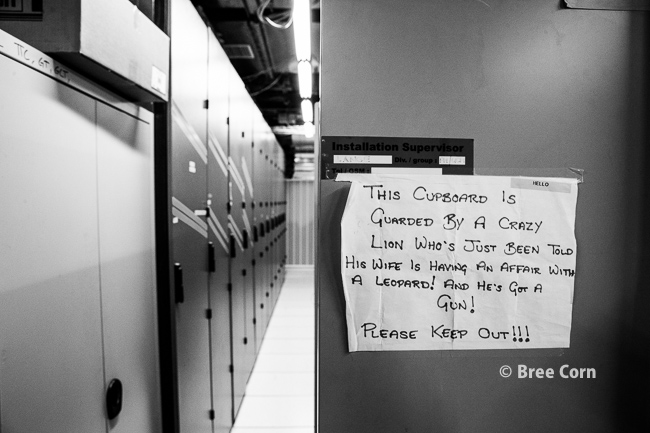 TTC, GT, GCT,
Installation Supervisor
Div. / group :
Tel / GSM :
HELLO
THIS CUPBOARD IS
GUARDED BY A CRAZY
LION WHO'S JUST BEEN TOLD
HIS WIFE IS HAVING AN AFFAIR WITH
A LEOPARD! AND HE'S GOT A
GUN!
PLEASE KEEP OUT!!!
© Bree Corn